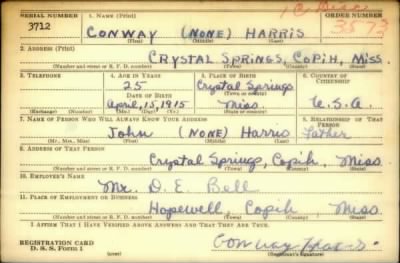 SERIAL NUMBER 1. NAME (Print) ORDER NUMBER
3712 CONWAY (NONE) HARRIS 3573
(First) (Middle) (Last)
2. ADDRESS (Print)
CRYSTAL SPRINGS, COPIH, MISS.
(Number and street or R. F. D. number) (Town) (County) (State)
3. TELEPHONE 4. AGE IN YEARS 5. PLACE OF BIRTH 6. COUNTRY OF CITIZENSHIP
25 Crystal Springs
DATE OF BIRTH (Town or county)
April, 15, 1915 Miss. U.S.A.
(Exchange) (Number) (Mo.) (Day) (Yr.) (State or country)
7. NAME OF PERSON WHO WILL ALWAYS KNOW YOUR ADDRESS 8. RELATIONSHIP OF THAT PERSON
John (NONE) Harris Father
(Mr., Mrs., Miss) (First) (Middle) (Last)
9. ADDRESS OF THAT PERSON
Crystal Springs, Copih, Miss.
(Number and street or R. F. D. number) (Town) (County) (State)
10. EMPLOYER'S NAME
Mr. D. E. Bell
11. PLACE OF EMPLOYMENT OR BUSINESS
Hopewell, Copih, Miss.
(Number and street or R. F. D. number) (Town) (County) (State)
I AFFIRM THAT I HAVE VERIFIED ABOVE ANSWERS AND THAT THEY ARE TRUE.
REGISTRATION CARD
D. S. S. Form 1 Conway Harris
(Registrant's signature)